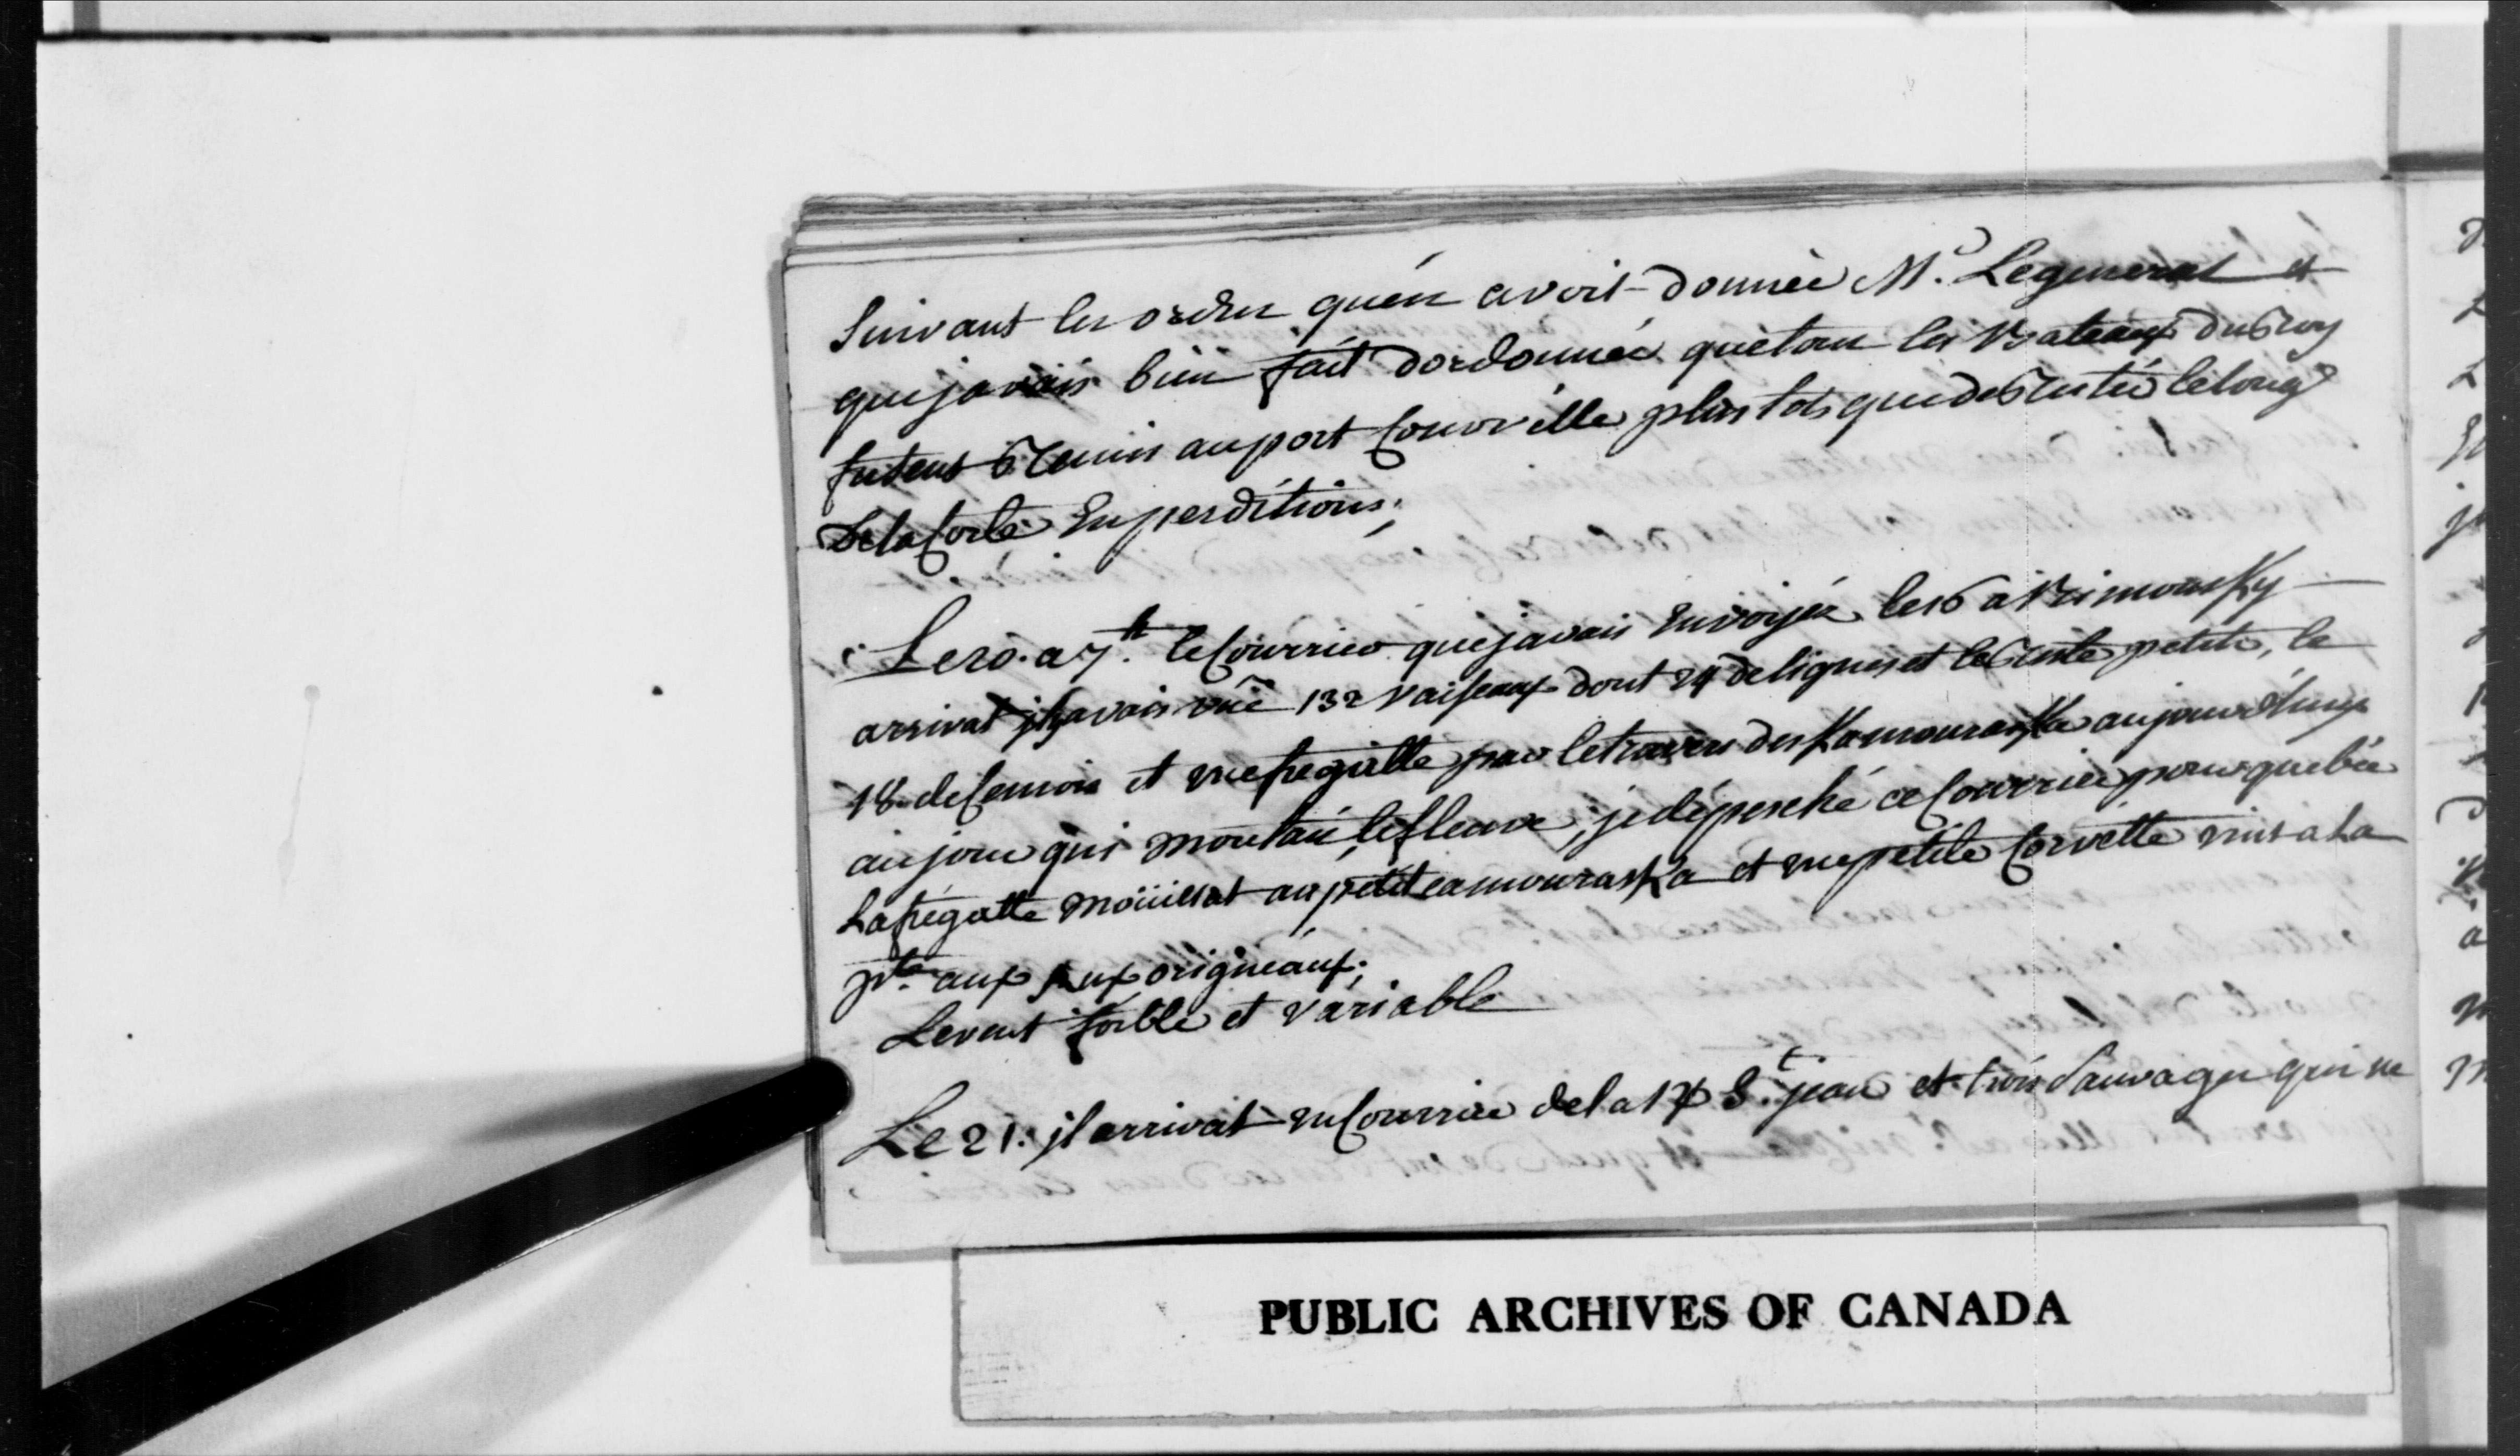 Suivant les ordres quén avoit donnée Mr. Legeneral et
que javais bien fait dordonnér quétous les Bateaux du Roy
futent Remis auport Couvrélle plus tots que de Resté lelong
De la Corte En perditions;
Le 20. a 7h. le Courrier que javais Envoyér le 16 a Rimousky
arrivat jl avais vûe 132 vaiseaux dont 24 de lignes et le Reste petits, le
18. de Cemois et vne fregatte par letravers des Kamouraska aujourdhuy
aujour qui montait le fleuve, je dépesché ce Courrier pour quebec
La frégatte moüillat au petit camouraska et vne petite Corvette vint a La
pte. aux origneaux;
Levent foible et variable
Le 21. jl arrivat un Courrier de la St. jean et trois Sauvages qui me
PUBLIC ARCHIVES OF CANADA